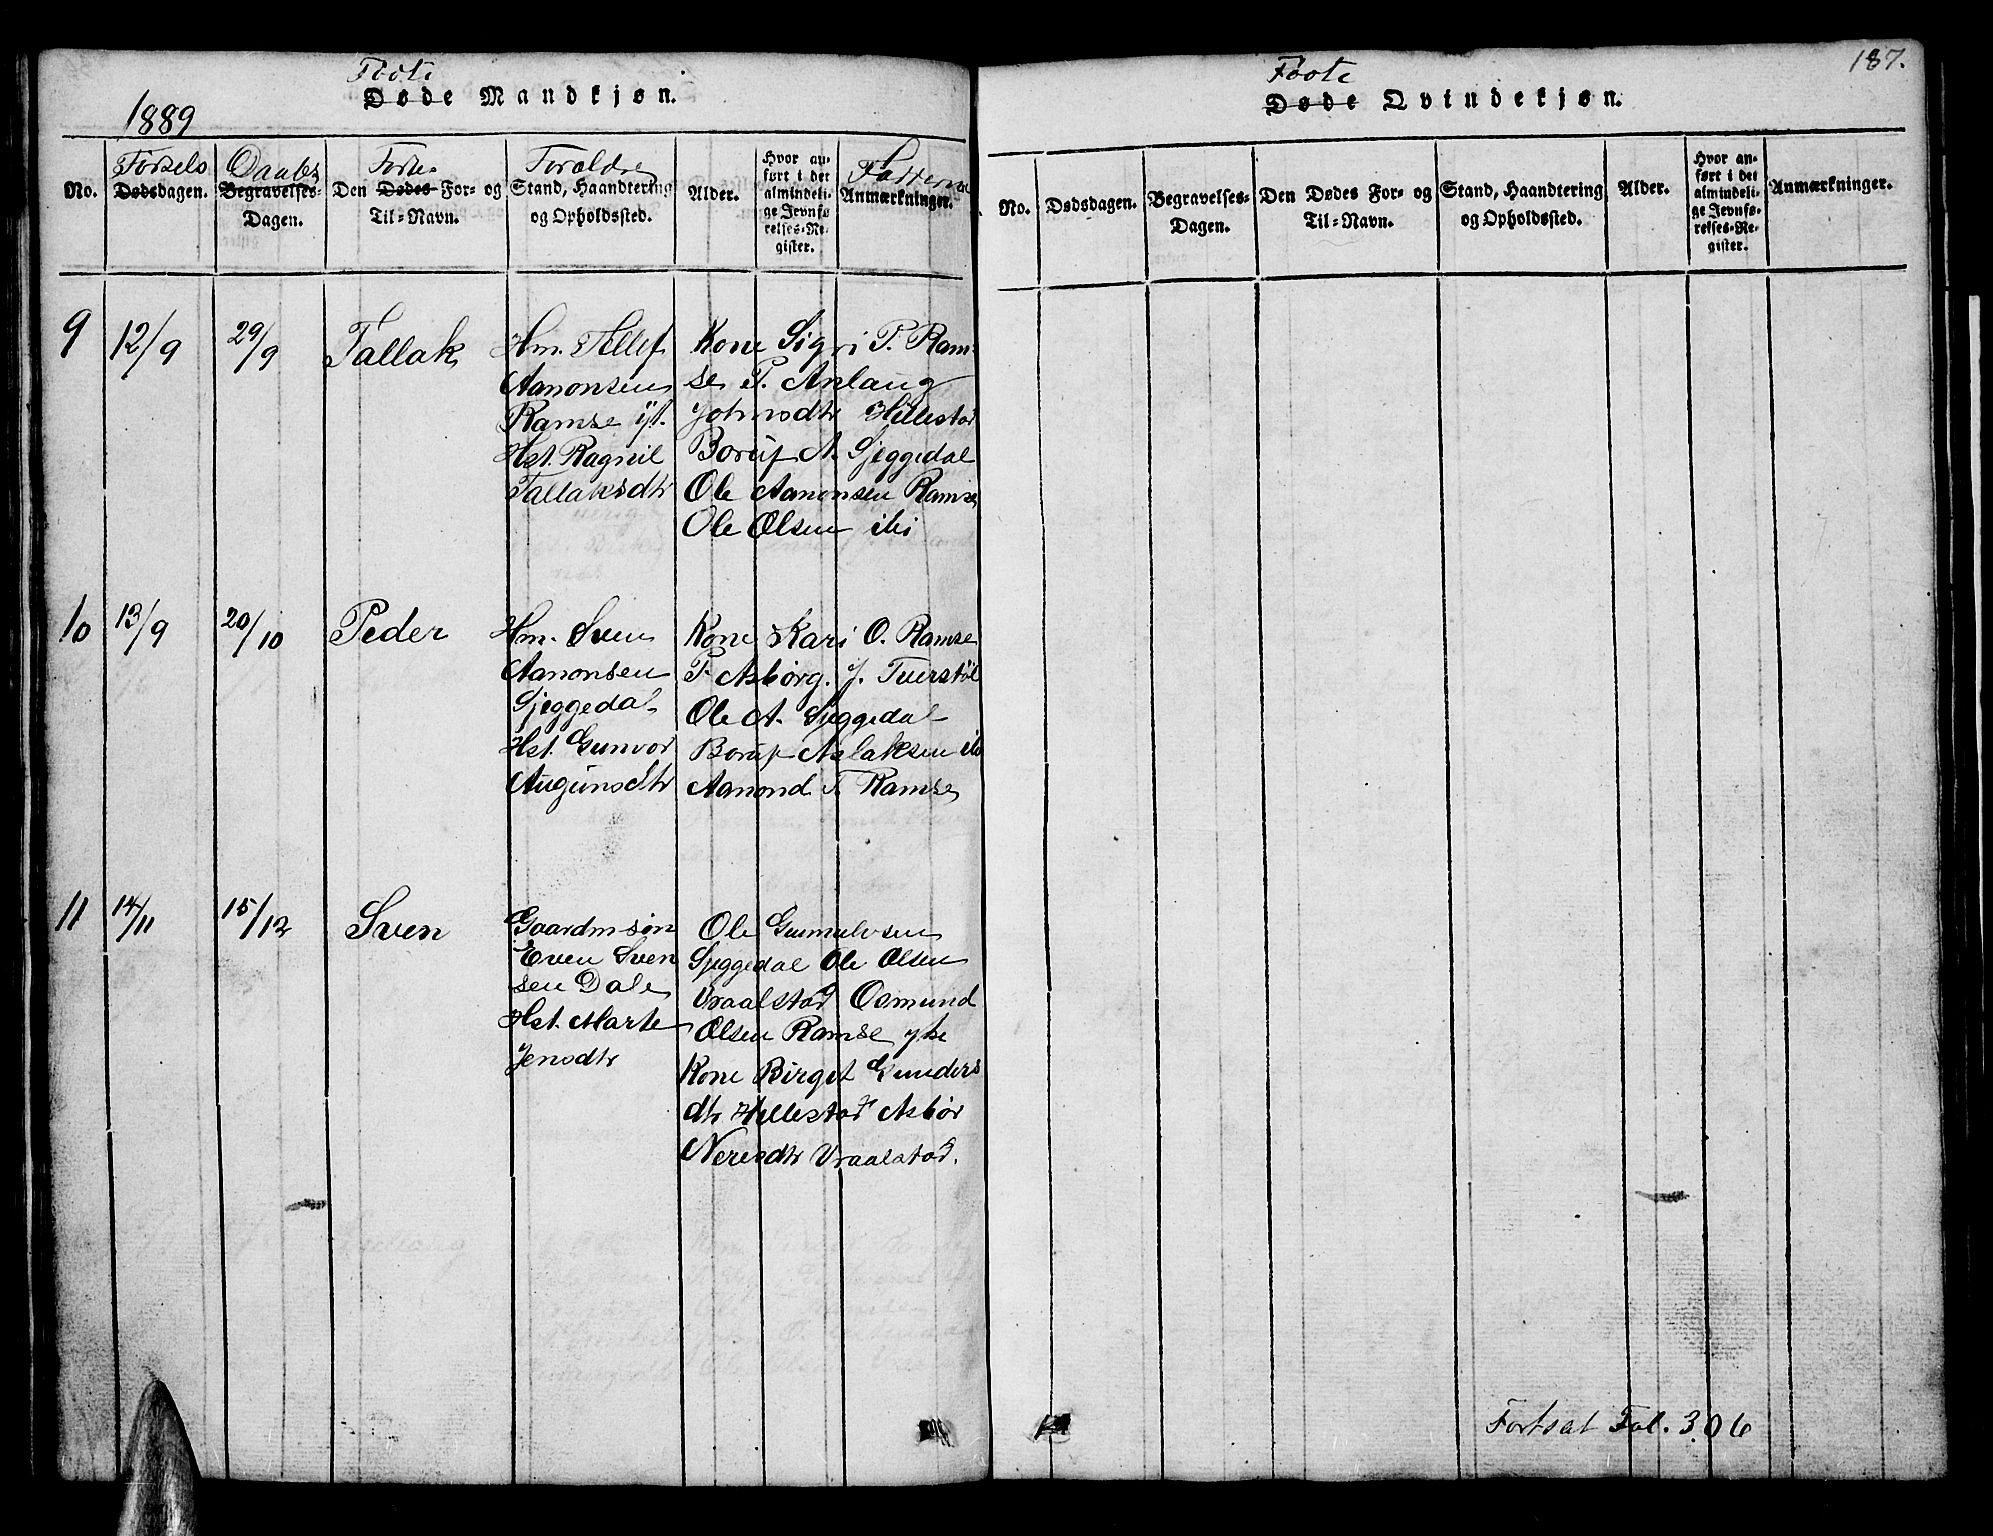 Fødte
Døde Mandkjøn.
1889
No.
Fødsels
Dødsdagen.
Daabs
Begravelses-
Dagen.
Den Dødes For- og
Til-Navn.
Forældr
Stand, Haandtering
og Opholdssted.
Alder.
Hvor an-
ført i det
almindeli-
ge Jevnfø
relses-Re-
gister.
Faddere
Anmærkninger.
9
12/9
29/9
Tallak
Hm. Tellef
Aanonsen
Ramse yt.
Hst. Ragnil
Tallaksdtr
Kone Sigri T. Ram-
se P. Aslaug
Johnsdtr Hillestad
Boruf A. Sjeggedal
Ole Aanonsen Ramse
Ole Olsen ibi
10
13/9
20/10
Peder
Hm. Sven
Aanonsen
Sjeggedal
Hst. Gunvor
Augunsdtr
Kone Kari O. Ramse
P. Asbørg. J. Tverstøl
Ole A. Sjeggedal
Boruf Aslaksen ibi
Aanond T. Ramse
11
14/11
15/12
Sven
Gaardm søn
Even Sven
sen Dale
Hst. Marte
Jensdtr
Ole Gunnulvsen
Sjeggedal Ole Olsen
Vraalstad Osmund
Olsen Ramse
Kone Birget Gunders
dtr Hillestad Asbør
Neresdtr Vraalstad.
187.
Fødte
Døde Qvindekjøn.
No.
Dødsdagen.
Begravelses-
Dagen.
Den Dødes For- og
Til-Navn.
Stand, Haandtering
og Opholdssted.
Alder.
Hvor an-
ført i det
almindeli-
ge Jevnfø-
relses-Re-
gister.
Anmærkninger.
Fortsat Fol. 306